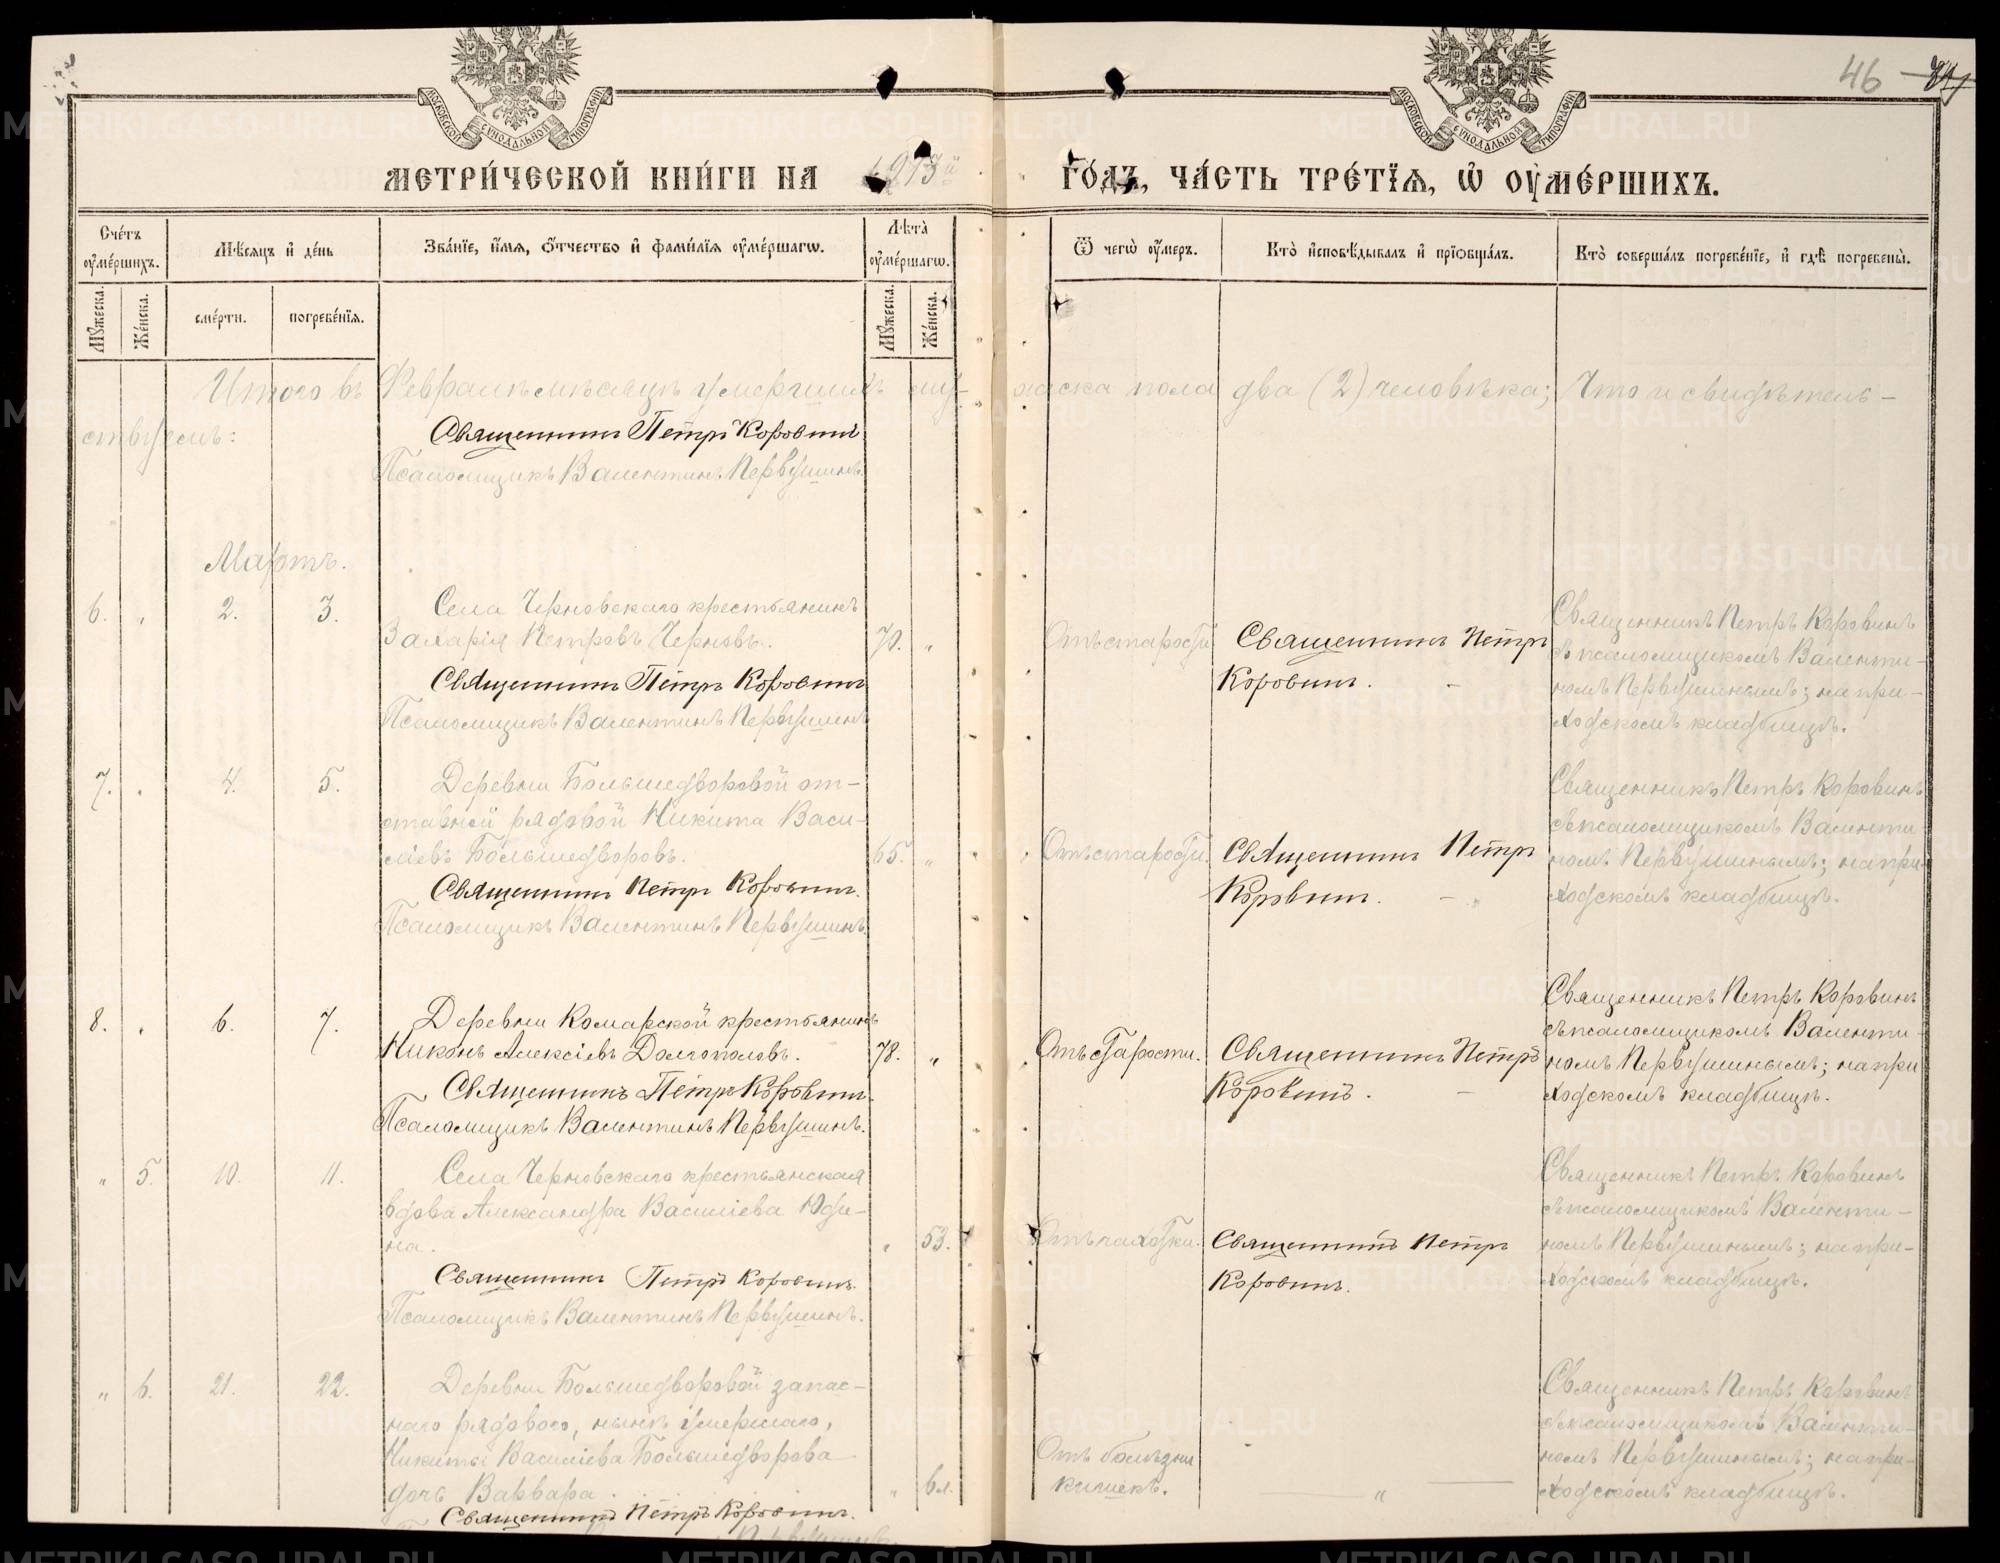 46
МОСКОВСКОЙ СѴНОДАЛЬНОЙ ТИПОГРАФІИ
МОСКОВСКОЙ СѴНОДАЛЬНОЙ ТИПОГРАФІИ
МЕТРИ́ЧЕСКОЙ КНИ́ГИ НА 1913й
ГО́ДЪ, ЧА́СТЬ ТРЕ́ТІѦ, Ѡ҆ ОУ҆МЕ́РШИХЪ.
Сче́тъ оу҆ме́ршихъ.
Мѣ́сяцъ и҆ де́нь
Зва́нїе, и҆́мя, ѻ҆́тчество и҆ фами́лїя оу҆ме́ршагѡ.
Лѣ́та оу҆ме́ршагѡ.
Ѿ чегѡ̀ оу҆́меръ.
Кто̀ и҆сповѣ́дывалъ и҆ прїѻбща́лъ.
Кто̀ соверша́лъ погребе́нїе, и҆ гдѣ̀ погребены̀.
Мꙋ́жеска.
Же́нска.
сме́рти.
погребе́нїя.
Мꙋ́жеска.
Же́нска.
Итого въ Февралѣ мѣсяцѣ умершихъ му-
жеска пола два (2) человѣка; Что и свидѣтель-
ствуемъ:
Священникъ Петръ Коровинъ
Псаломщикъ Валентинъ Первушинъ.
Мартъ.
6. „ 2. 3. Села Черновскаго крестьянинъ
Захарія Петровъ Черновъ. 70. „
Священникъ Петръ Коровинъ
Псаломщикъ Валентинъ Первушинъ
Отъ старости
Священникъ Петръ
Коровинъ.
Священникъ Петръ Коровинъ
съ псаломщикомъ Валенти-
номъ Первушинымъ; на при-
ходскомъ кладбищѣ.
7. „ 4. 5. Деревни Большедворовой от-
ставной рядовой Никита Васи-
ліевъ Большедворовъ. 65. „
Священникъ Петръ Коровинъ.
Псаломщикъ Валентинъ Первушинъ.
Отъ старости.
Священникъ Петръ
Коровинъ.
Священникъ Петръ Коровинъ
съ псаломщикомъ Валенти-
номъ Первушинымъ; на при-
ходскомъ кладбищѣ.
8. „ 6. 7. Деревни Комарской крестьянинъ
Никонъ Алексіевъ Долгополовъ. 78. „
Священникъ Петръ Коровинъ.
Псаломщикъ Валентинъ Первушинъ.
Отъ старости.
Священникъ Петръ
Коровинъ.
Священникъ Петръ Коровинъ
съ псаломщикомъ Валенти-
номъ Первушинымъ; на при-
ходскомъ кладбищѣ.
„ 5. 10. 11. Села Черновскаго крестьянская
вдова Александра Василіева Юди-
на. „ 53.
Священникъ Петръ Коровинъ.
Псаломщикъ Валентинъ Первушинъ.
Отъ чахотки.
Священникъ Петръ
Коровинъ.
Священникъ Петръ Коровинъ
съ псаломщикомъ Валенти-
номъ Первушинымъ; на при-
ходскомъ кладбищѣ.
„ 6. 21. 22. Деревни Большедворовой запас-
наго рядового, нынѣ умершаго,
Никиты Василіева Большедворова
дочь Варвара. „ 6 л.
Священникъ Петръ Коровинъ.
Отъ болѣзни
кишекъ.
„
Священникъ Петръ Коровинъ
съ псаломщикомъ Валенти-
номъ Первушинымъ; на при-
ходскомъ кладбищѣ.
METRIKI.GASO-URAL.RU